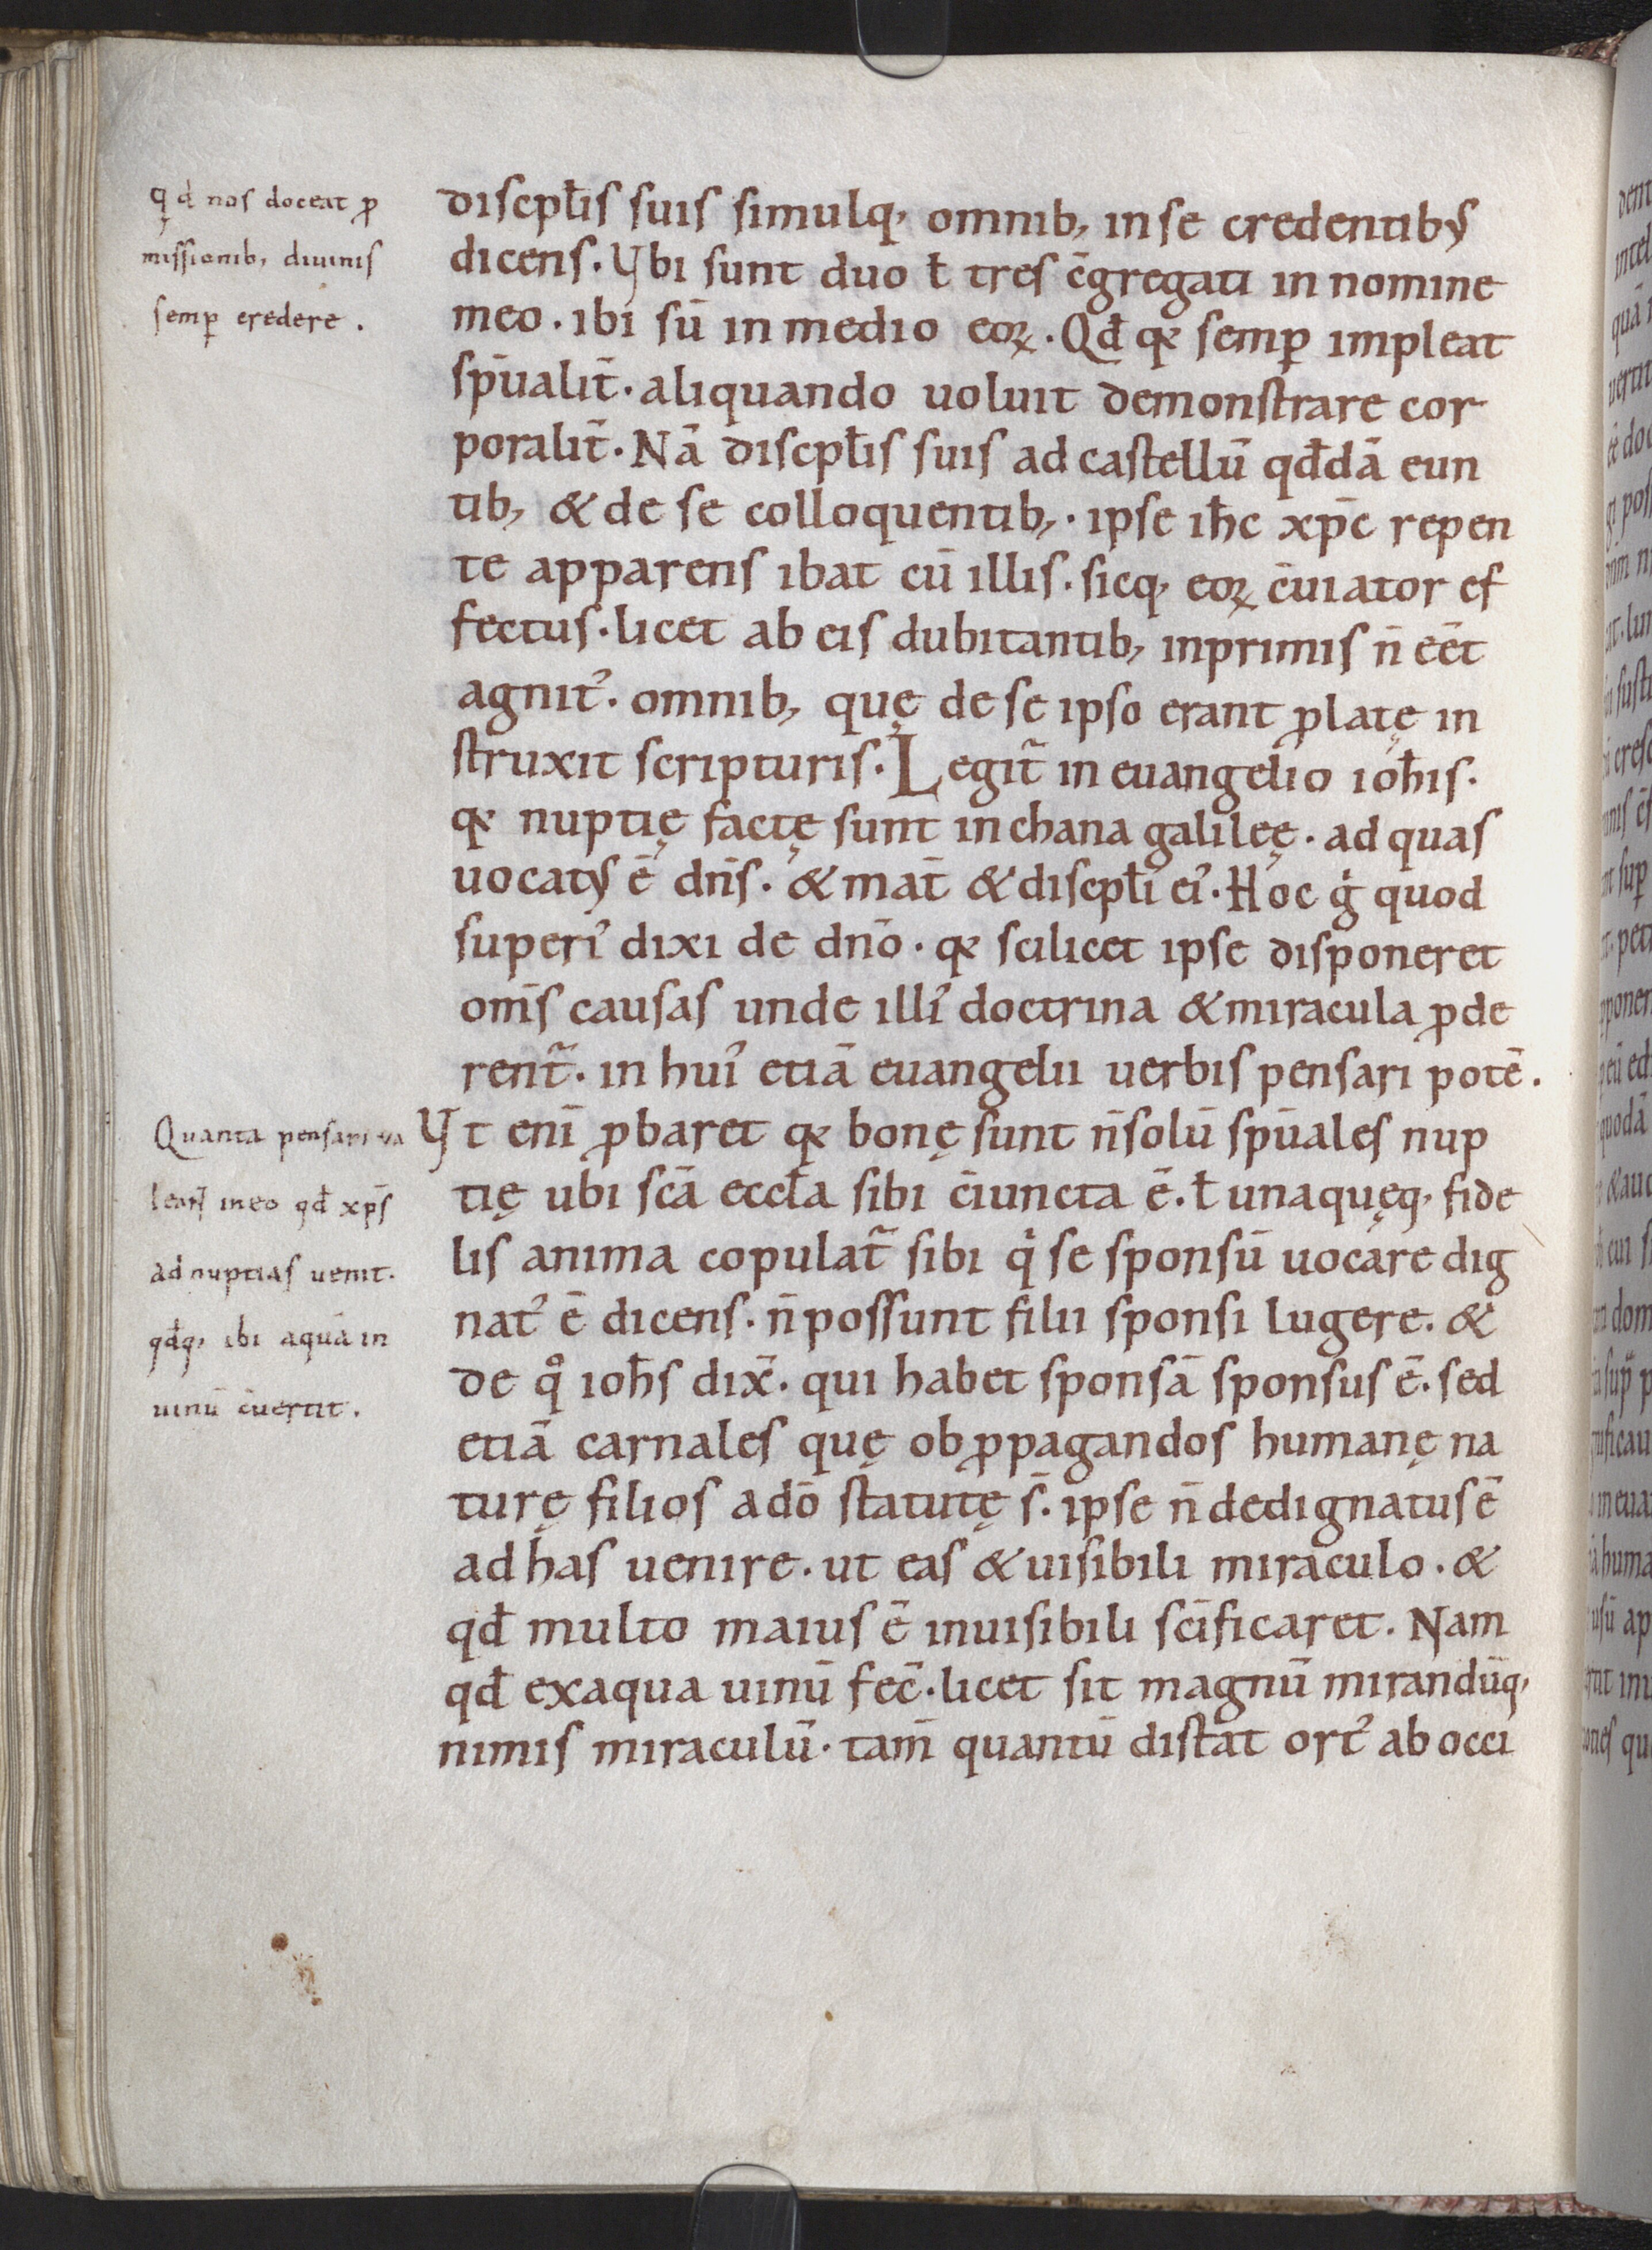 qd nos doceat ꝓ
missionib; diuinis
semꝑ credere.
discpłis suis simulq; omnib; in se credentibꝰ
dicens. Vbi sunt duo ł tres c̄gregati in nomine
meo. ibi sū in medio eoꝝ. Qđ qꝛ semꝑ impleat
sp̄ualit̄. aliquando uoluit demonstrare cor
poralit̄. Nā discpłis suis ad castellū qđdā eun
tib; & de se colloquentib;. ipse ih̄c xp̄c repen
te apparens ibat cū illis. sicq; eoꝝ c̄uiator ef
fectus. licet ab eis dubitantib; inprimis n̄ eēt
agnitꝰ. omnib; quę de se ipso erant ꝓlatę in
struxit scripturis. Legit̃ in euangelio ioh̄is.
qꝛ nuptię factę sunt in chana galileę. ad quas
uocatꝰ ē dn̄s. & mat̄ & discpłi eiꝰ. Hoc g̍ quod
superiꝰ dixi de dn̄o. qꝛ scilicet ipse disponeret
om̄s causas unde illiꝰ doctrina & miracula ꝓde
rent̃. in huiꝰ etiā euangelii uerbis pensari potē.
Quanta pensari ua
leant̃ in eo qđ xp̄s
ad nuptias uenit.
qđq; ibi aquā in
uinū c̄uertit.
Vt enī ꝓbaret qꝛ bonę sunt n̄ solū sp̄uales nup
tię ubi sc̄a eccła sibi c̄iuncta ē. ł unaquęq; fide
lis anima copulat̃ sibi q̍ se sponsū uocare dig
natꝰ ē dicens. n̄ possunt filii sponsi lugere. &
de qͦ ioh̄s dix̄. qui habet sponsā sponsus ē. sed
etiā carnales quę ob ꝓpagandos humanę na
turę filios a dō statutę s̄. ipse n̄ dedignatus ē
ad has uenire. ut eas & uisibili miraculo. &
qđ multo maius ē inuisibili sc̄ificaret. Nam
qđ ex aqua uinū fec̄. licet sit magnū mirandūq;
nimis miraculū. tam̄ quantū distat ortꝰ ab occi